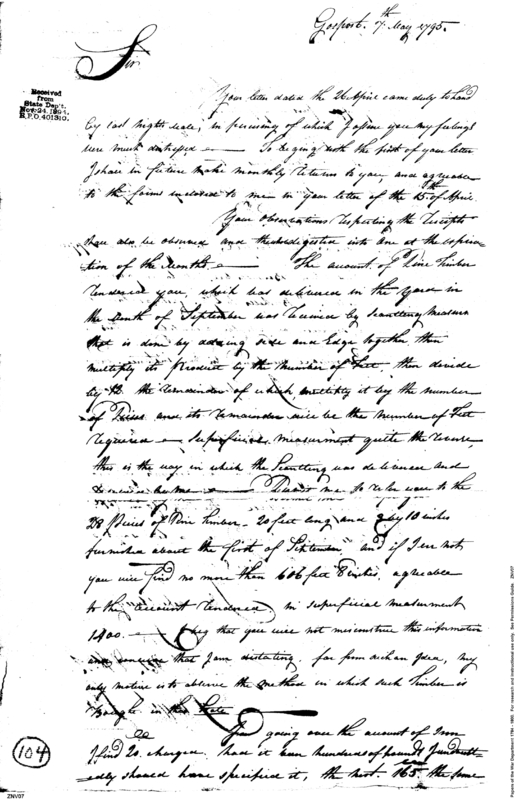 Gosport. 7th May 1795.
Sir
Received
from
State Dep't.
Nov. 24. 1894.
R.P.O. 401310.
Your letter dated the 26 April came duly to hand
by last nights male, in perusing of which I assure you my feelings
were much distressed — To begin with the first of your letter
I shall in future make monthly returns to you, and agreeable
to the forms inclosed to me in your letter of the 15th of April.
Your observations respecting the Receipts
shall also be observed and digested into one at the expira
tion of the Months — The amount of Pine Timber
rendered you, which was delivered in the yard in
the Month of September was received by Scantling Measure
that is done by adding side and Edge together, then
multiply its product by the number of Feet, then divide
by 12 the remainder of which multiply it by the number
of Pieces and its remainder will be the number of Feet
required — superficial measurment quite the reverse,
this is the way in which the Scantling was delivered and
Permit me to refer you to the
28 Pieces of Pine Timber 20 feet long and by 10 inches
furnished about the first of September, and if I err not
you will find no more than 606 feet 8 inches, agreeable
to the account rendered in superficial measurment
1400. — I beg that you will not misconstrue this information
and conceive that I am dictating far from such an Idea, my
only motive is to observe the method in which such Timber is
Bought in this State
In going over the amount of Iron
I find 20 charged had it been hundreds of pounds I undoubt-
edly should have specified it, the next 165 the same
104
ZNV07
Papers of the War Department 1784 - 1800. For research and instructional use only. See Permissions Guide. ZNV07